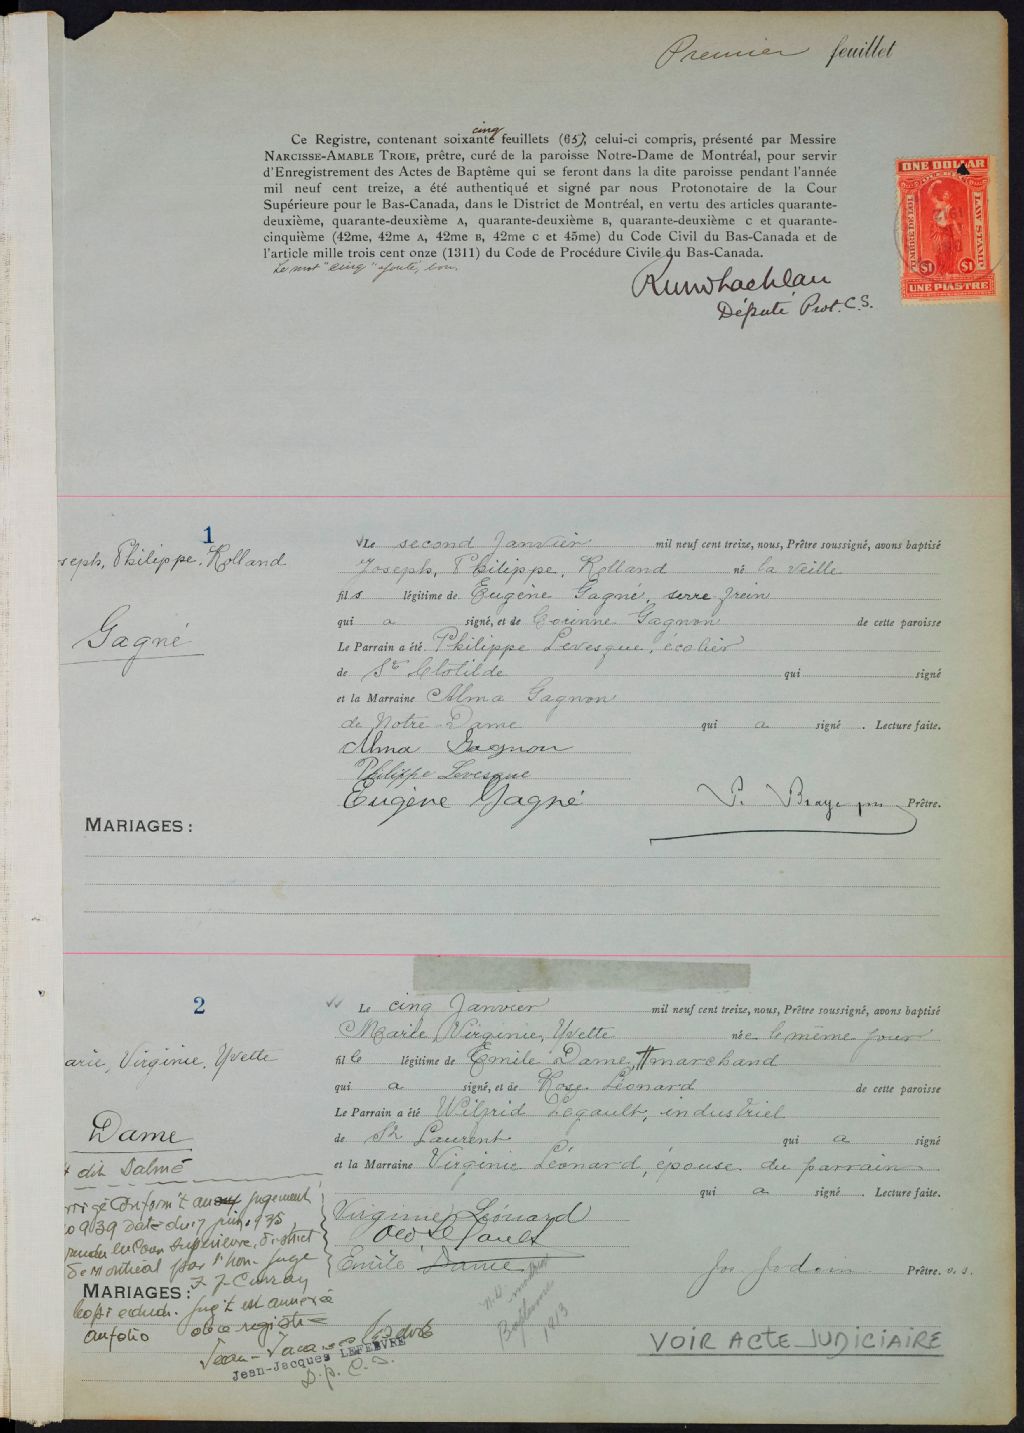 Premier feuillet
cinq
Ce Registre, contenant soixante feuillets (65), celui-ci compris, présenté par Messire
NARCISSE-AMABLE TROIE, prêtre, curé de la paroisse Notre-Dame de Montréal, pour servir
d'Enregistrement des Actes de Baptême qui se feront dans la dite paroisse pendant l'année
mil neuf cent treize, a été authentiqué et signé par nous Protonotaire de la Cour
Supérieure pour le Bas-Canada, dans le District de Montréal, en vertu des articles quarante-
deuxième, quarante-deuxième A, quarante-deuxième B, quarante-deuxième C et quarante-
cinquième (42me, 42me A, 42me B, 42me C et 45me) du Code Civil du Bas-Canada et de
l'article mille trois cent onze (1311) du Code de Procédure Civile du Bas-Canada.
Le mot "cinq" ajouté, bon.
Député Prot. C.S.
ONE DOLLAR
TIMBRE DE LOI
LAW STAMP
$1 $1
UNE PIASTRE
1
seph, Philippe, Rolland
Gagné
Le second Janvier mil neuf cent treize, nous, Prêtre soussigné, avons baptisé
Joseph, Philippe, Rolland né la veille
fils légitime de Eugène Gagné, serre-frein
qui a signé, et de Corinne Gagnon de cette paroisse
Le Parrain a été Philippe Levesque, écolier
de Ste Clotilde qui signé
et la Marraine Alma Gagnon
de Notre-Dame qui a signé. Lecture faite.
Alma Gagnon
Philippe Levesque
Eugène Gagné
P. Braye ptre Prêtre.
MARIAGES:
2
arie, Virginie, Yvette
Dame
dit Dalmé
Le cinq Janvier mil neuf cent treize, nous, Prêtre soussigné, avons baptisé
Marie, Virginie, Yvette née le même jour
fille légitime de Emile Dame, marchand
qui a signé, et de Rose Léonard de cette paroisse
Le Parrain a été Wilfrid Legault, industriel
de St Laurent qui a signé
et la Marraine Virginie Léonard, épouse du parrain
qui a signé. Lecture faite.
Virginie Léonard
Emile Dame
Jos. Jodoin Prêtre. o.s.
conform't au jugement
939 daté du 7 juin 1935
rendu en Cour Supérieure, district
de Montréal par l'hon. juge
F J Curran
MARIAGES:
copie du dit jug't est annexée
au folio de ce registre
Jean-Jacques LEFEBVRE
D.P.C.S.
N.D. Montréal
Baptême
1913
VOIR ACTE JUDICIAIRE